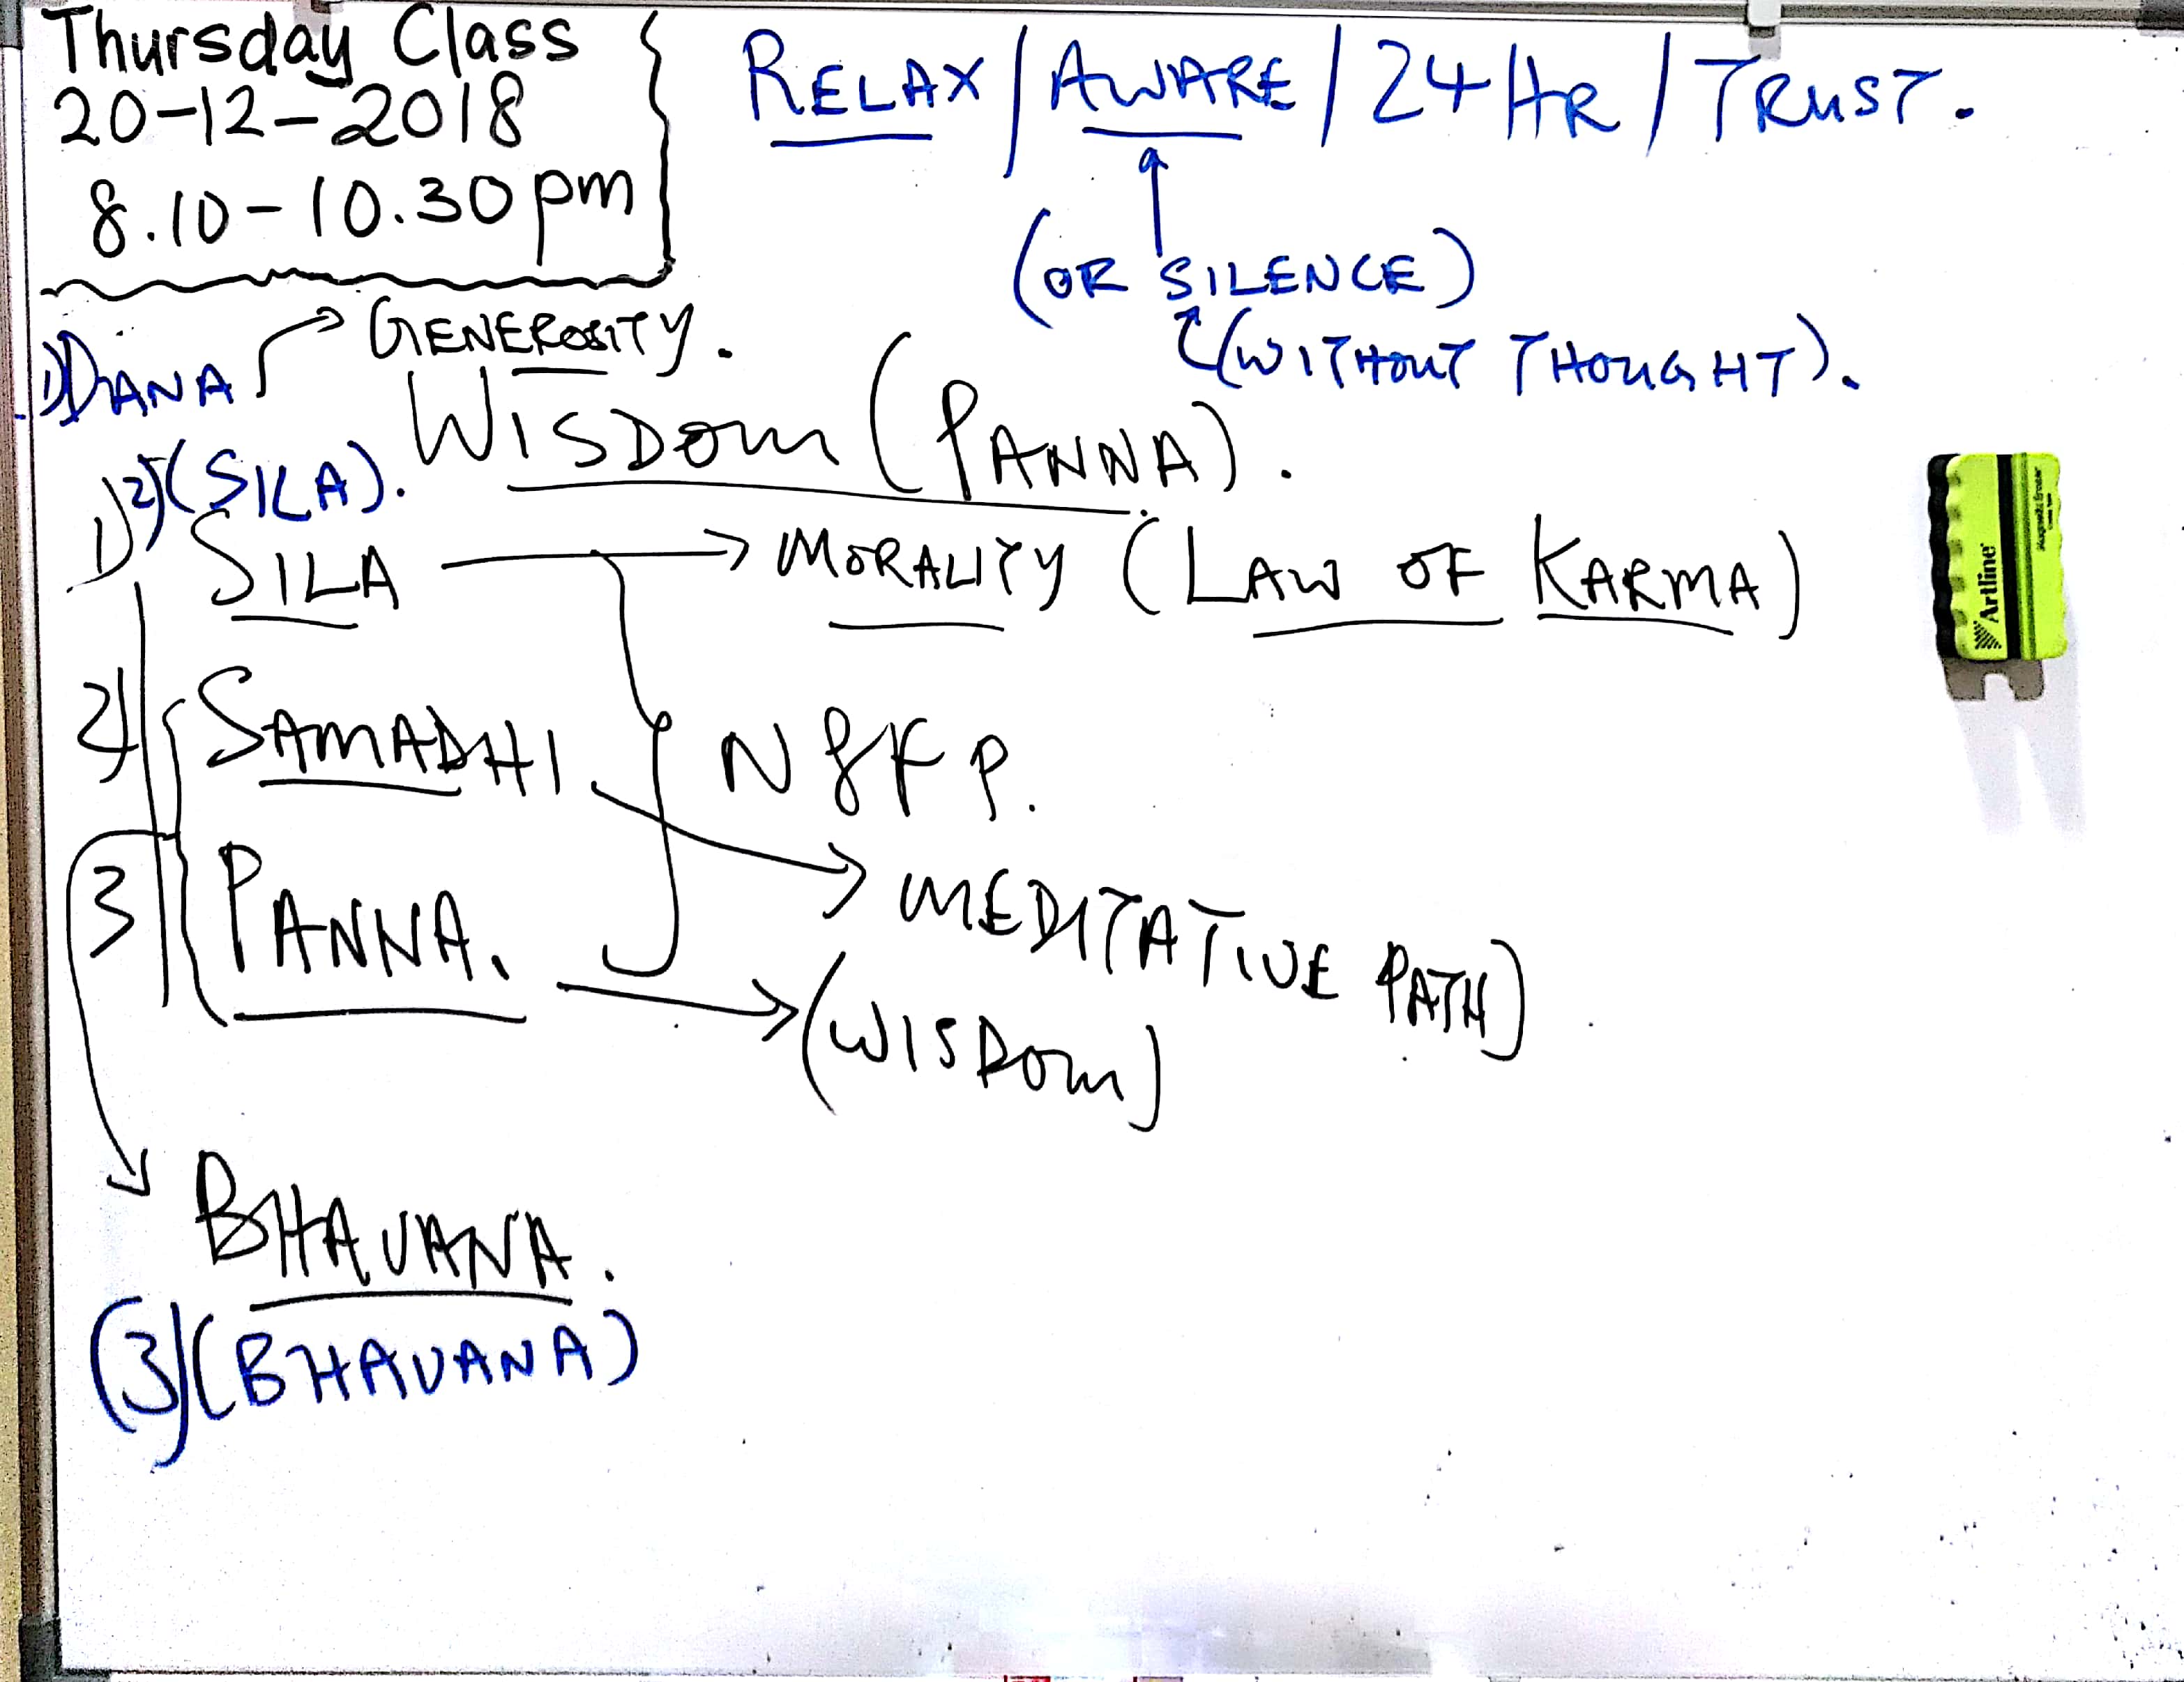 Thursday Class
20-12-2018
8.10-10.30pm
RELAX / AWARE / 24 HR / TRUST.
(OR SILENCE)
(WITHOUT THOUGHT).
1) DANA
GENEROSITY.
WISDOM (PANNA).
2) (SILA).
1) SILA → MORALITY (LAW OF KARMA)
2) SAMADHI.
N8FP.
3 PANNA.
→ MEDITATIVE PATH)
→ (WISDOM)
BHAVANA.
(3) (BHAVANA)
Artline